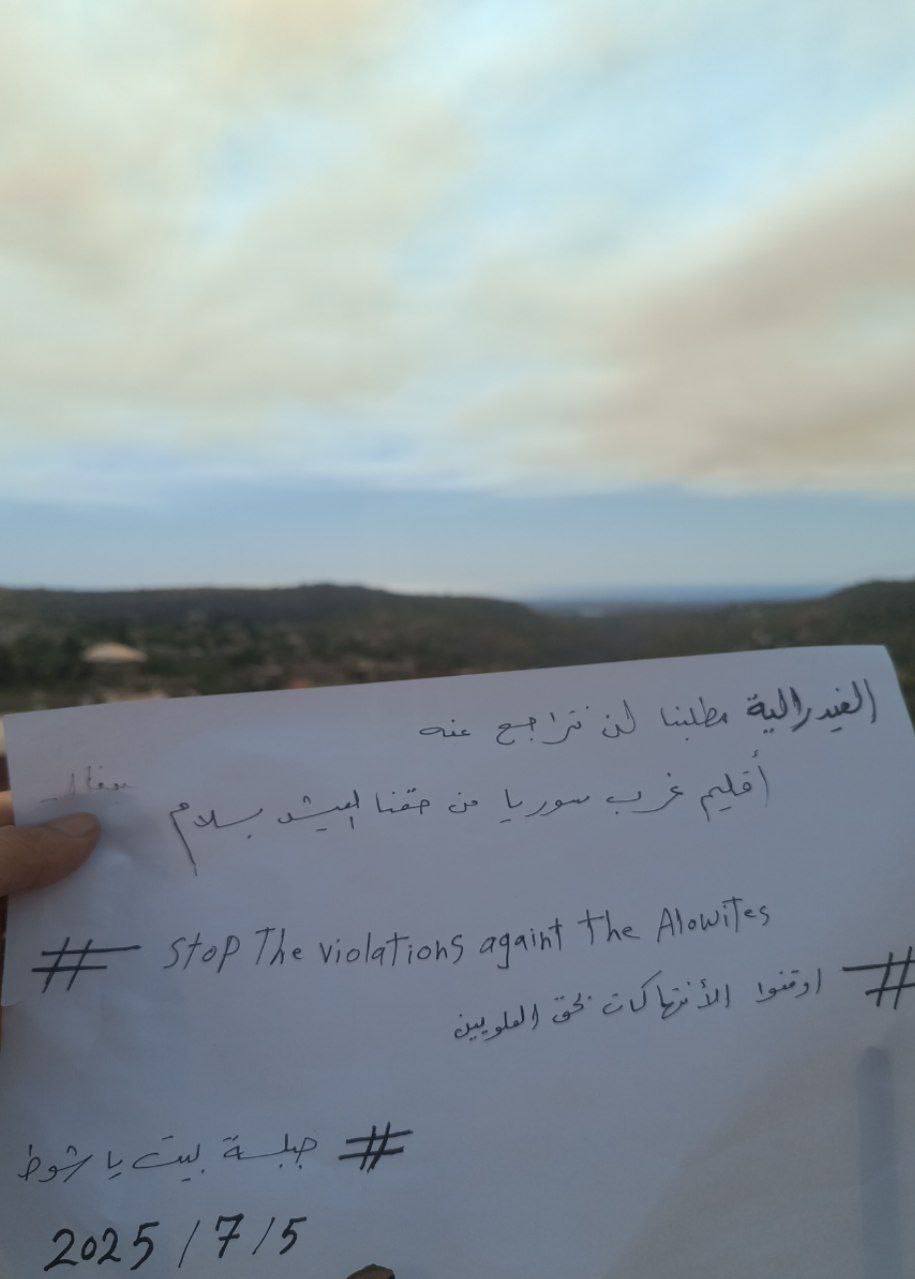 الفيدرالية مطلبنا لن نتراجع عنه
أقليم غرب سوريا من حقنا العيش بسلام
# Stop The violations againt the Alowites
# اوقفوا الأنتهاكات بحق العلويين
# جبلة بيت ياشوط
2025/7/5